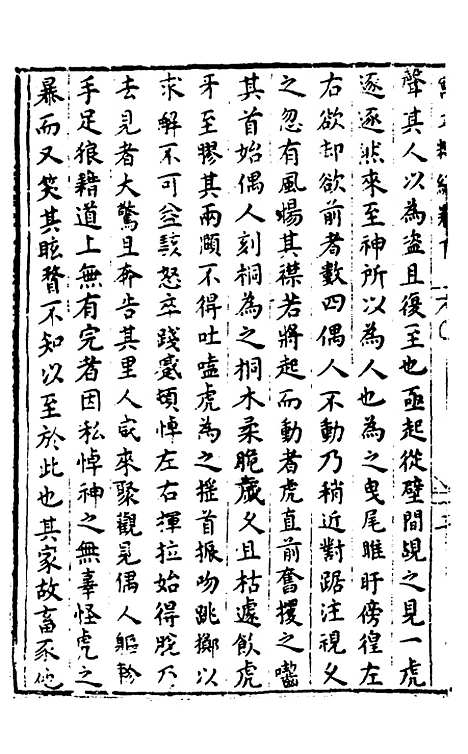 聲其人以為盜且復至也亟起從壁間覘之見一虎
逐逐然來至神所以為人也為之曳尾睢盱傍徨左
右欲却欲前者數四偶人不動乃稍近對踞注視久
之忽有風惕其襟若將起而動者虎直前奮攫之嚙
其首始偶人刻桐為之桐木柔脆歲久且枯遽飲虎
牙至膠其兩頤不得吐嗑虎為之搖首振吻跳擲以
求解不可益駭怒卒踐躄頓悼左右揮拉始得脫乃
去見者大驚旦奔告其里人咸來聚觀見偶人軀軫
手足狼藉道上無有完者因私悼神之無辜怪虎之
暴而又笑其眩瞀不知以至於此也其家故畜豕他